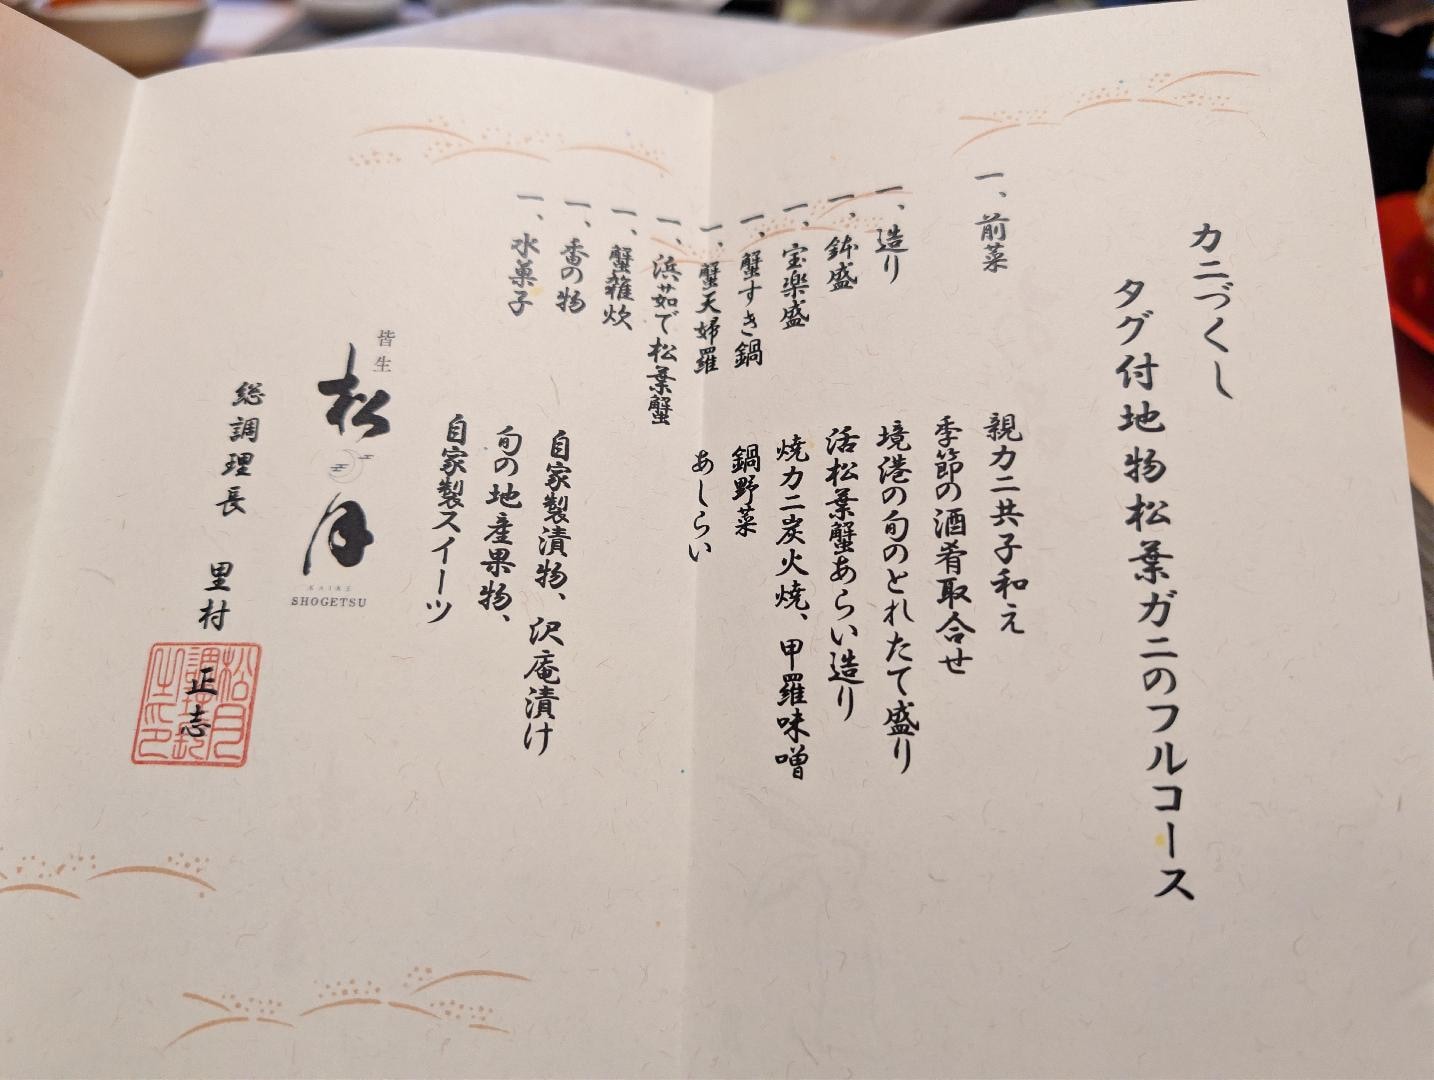 カニづくし
タグ付地物松葉ガニのフルコース
一、前菜
親カニ共子和え
季節の酒肴取合せ
一、造り
境港の旬のとれたて盛り
一、鉢盛
活松葉蟹あらい造り
一、宝楽盛
焼カニ炭火焼、甲羅味噌
一、蟹すき鍋
鍋野菜
一、蟹天婦羅
あしらい
一、浜茹で松葉蟹
一、蟹雑炊
一、香の物
自家製漬物、沢庵漬け
一、水菓子
旬の地産果物、
自家製スイーツ
皆生
松月
KAIKE
SHOGETSU
総調理長 里村 正志